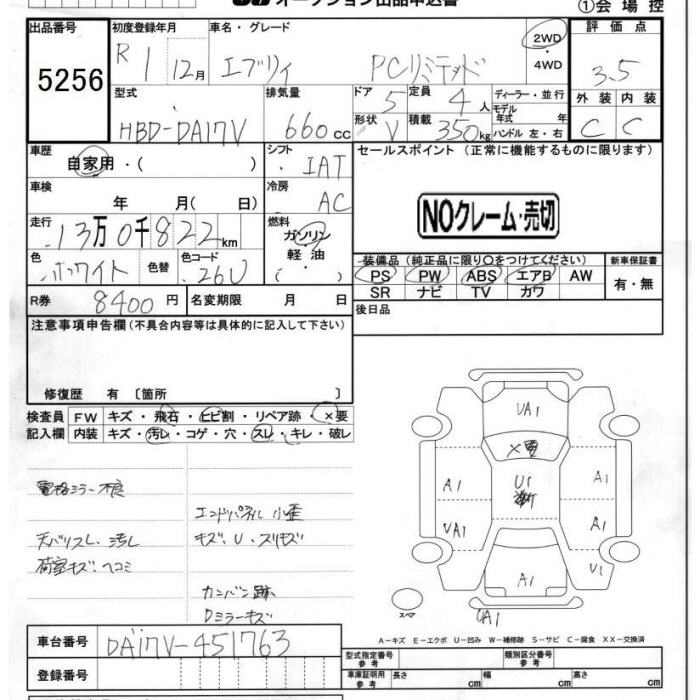 オークション出品申込書
①会場控
出品番号 初度登録年月 車名・グレード 2WD・4WD 評価点
5256 R 1 12月 エブリィ PCリミテッド 3.5
型式 排気量 ドア 5 定員 4 人 ディーラー・並行 外装 内装
モデル年式 年
HBD-DA17V 660cc 形状 V 積載 350kg ハンドル 左・右 C C
車歴 シフト セールスポイント (正常に機能するものに限ります)
自家用・( ) IAT
車検 冷房
年 月( 日) AC
NOクレーム・売切
走行 燃料
13万0千822km ガソリン・軽油・( )
色 色替 色コード 装備品(純正品に限り○をつけてください) 新車保証書
ホワイト 26U PS PW ABS エアB AW 有・無
SR ナビ TV カワ
R券 8400円 名変期限 月 日 後日品
注意事項申告欄(不具合内容等は具体的に記入して下さい)
修復歴 有 〔箇所 〕
検査員 FW キズ・飛石・ヒビ割・リペア跡・×要
記入欄 内装 キズ・汚レ・コゲ・穴・スレ・キレ・破レ
UA1
×要
A1 U1 A1
UA1 A1
A1 U1
UA1
電格ミラー不良
エンドパネル 小歪
天バリスレ、汚レ キズ、U、スリキズ
荷室キズ、ヘコミ
カンバン跡
Dミラーキズ
スペア
A-キズ E-エクボ U-凹み W-補修跡 S-サビ C-腐食 XX-交換済
車台番号 DA17V-451763
型式指定番号 参考 類別区分番号 参考
登録番号 車庫証明用 参考 長さ cm 幅 cm 高さ cm